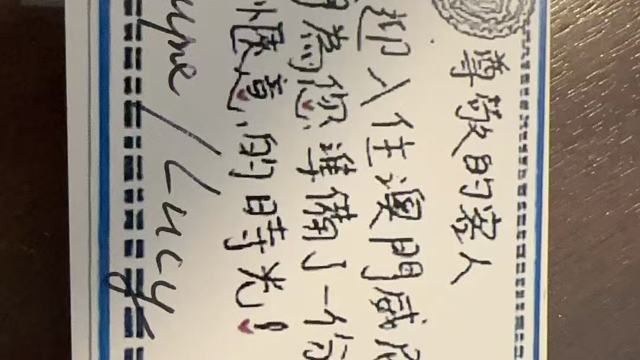 尊敬的客人
迎入住澳門威
為您準備了一份
愜意的時光!
/Lucy